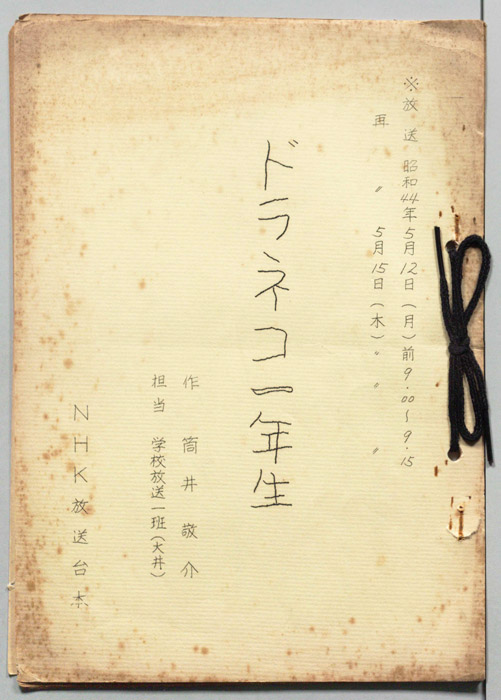 ※放送 昭和44年5月12日(月)前9.00〜9.15
再〃 5月15日(木)〃 〃 〃
ドラネコ一年生
作 筒井敬介
担当 学校放送一班(大井)
NHK放送台本